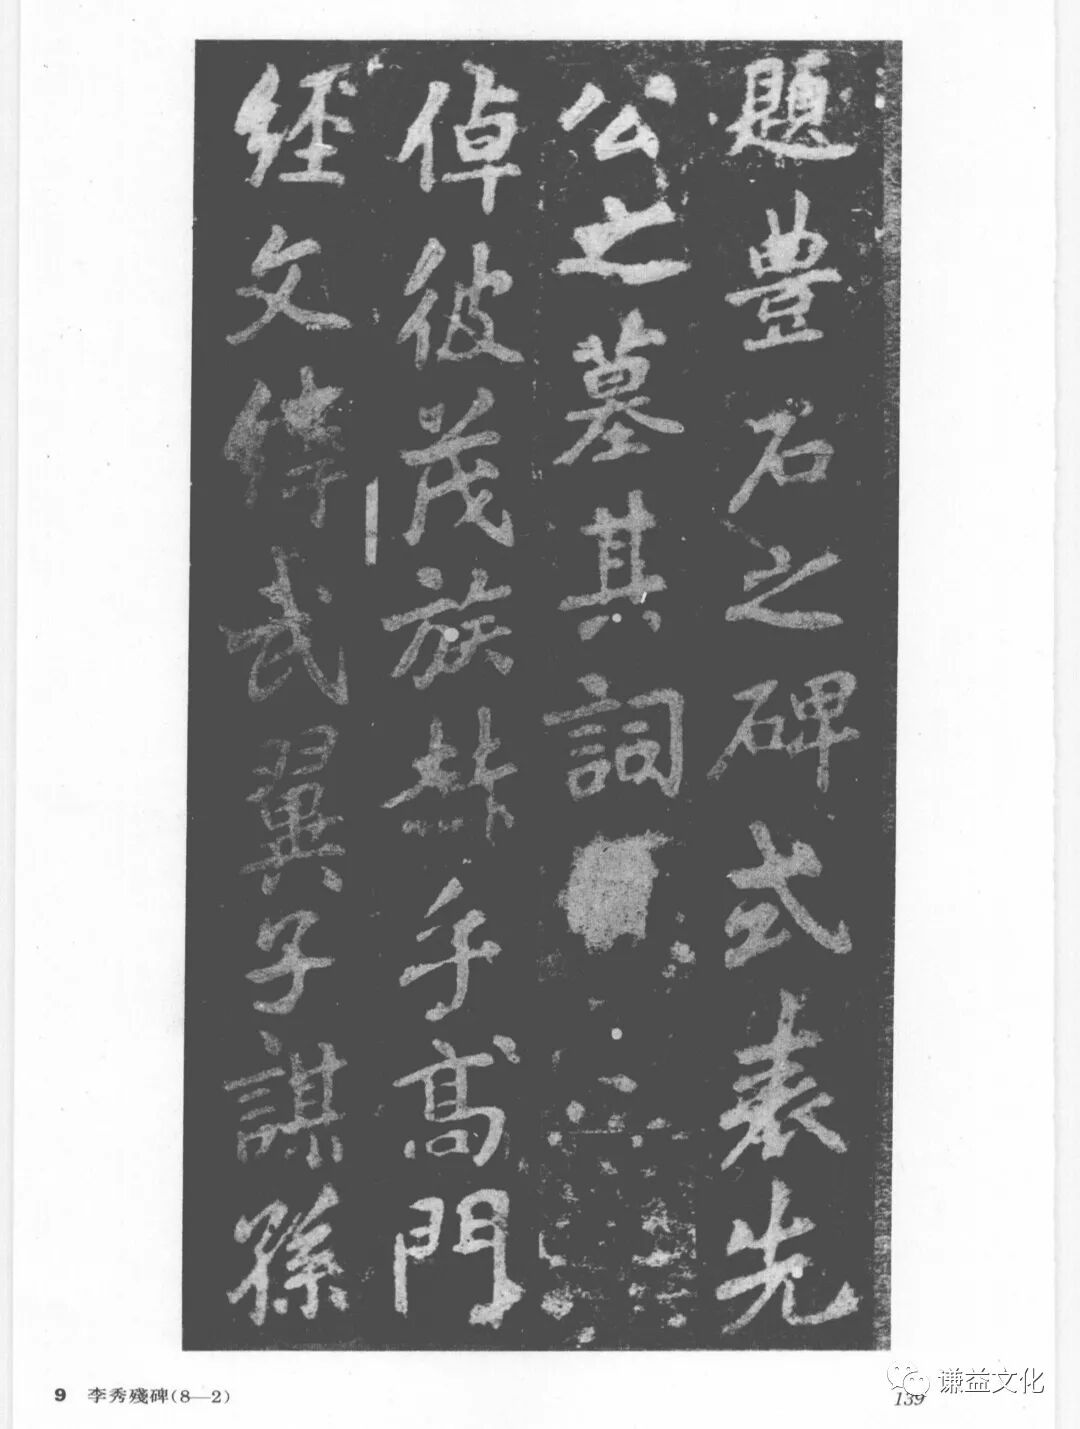 題豊石之碑式表先
公之墓其詞
倬彼茂族赫乎髙門
經文緯武翼子謀孫
9 李秀殘碑(8—2)
139
谦益文化